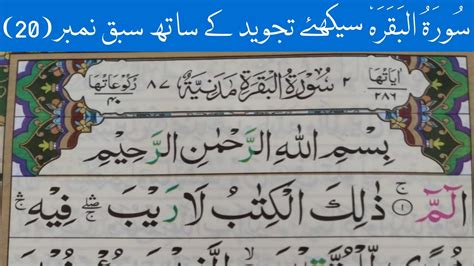 سُورَةُ البَقَرَهْ سیکھئے تجوید کے ساتھ سبق نمبر (20)
اٰیَاتُهَا ٢٨٦ ٢ سُوْرَةُ الْبَقَرَةِ مَدَنِيَّةٌ ٨٧ رُكُوْعَاتُهَا ٤٠
بِسْمِ اللهِ الرَّحْمٰنِ الرَّحِيْمِ
الٓمّٓ ۚ ١ ذٰلِكَ الْكِتٰبُ لَا رَيْبَ ۛۖۚ فِيْهِ ۛۚ